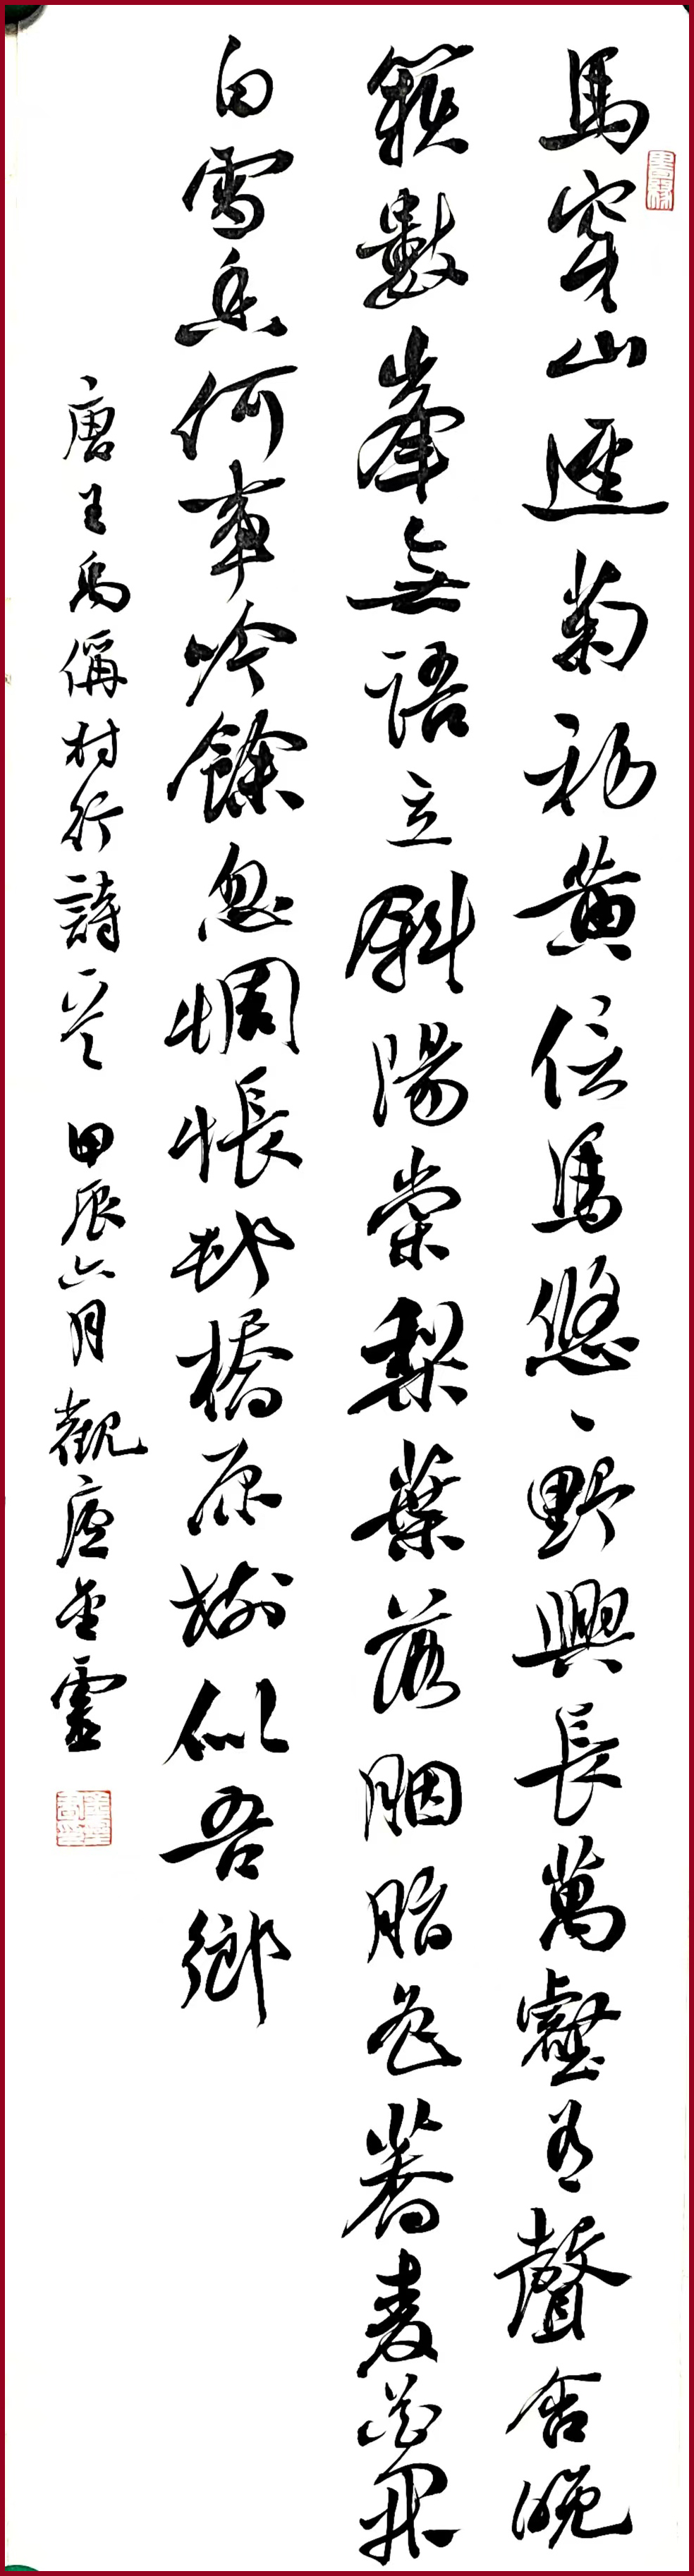 馬穿山逕菊初黃信馬悠〻野興長萬壑有聲含晚
籟數峯無語立斜陽棠梨葉落胭脂色蕎麥花開
白雪香何事吟餘忽惆悵村橋原樹似吾鄉
唐王禹偁村行詩一首 甲辰六月 觀廬金靈